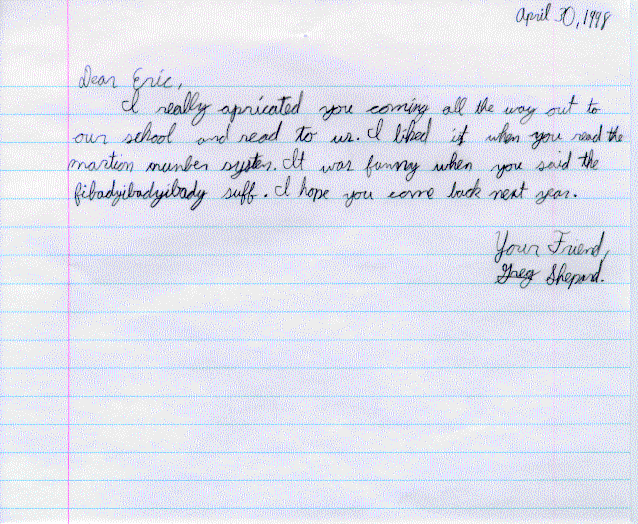 April 30, 1998
Dear Eric,
I really apricated you coming all the way out to
our school and read to us. I liked it when you read the
martion number system. It was funny when you said the
fibadyibadyibady suff. I hope you come back next year.
Your Friend,
Greg Shepard.